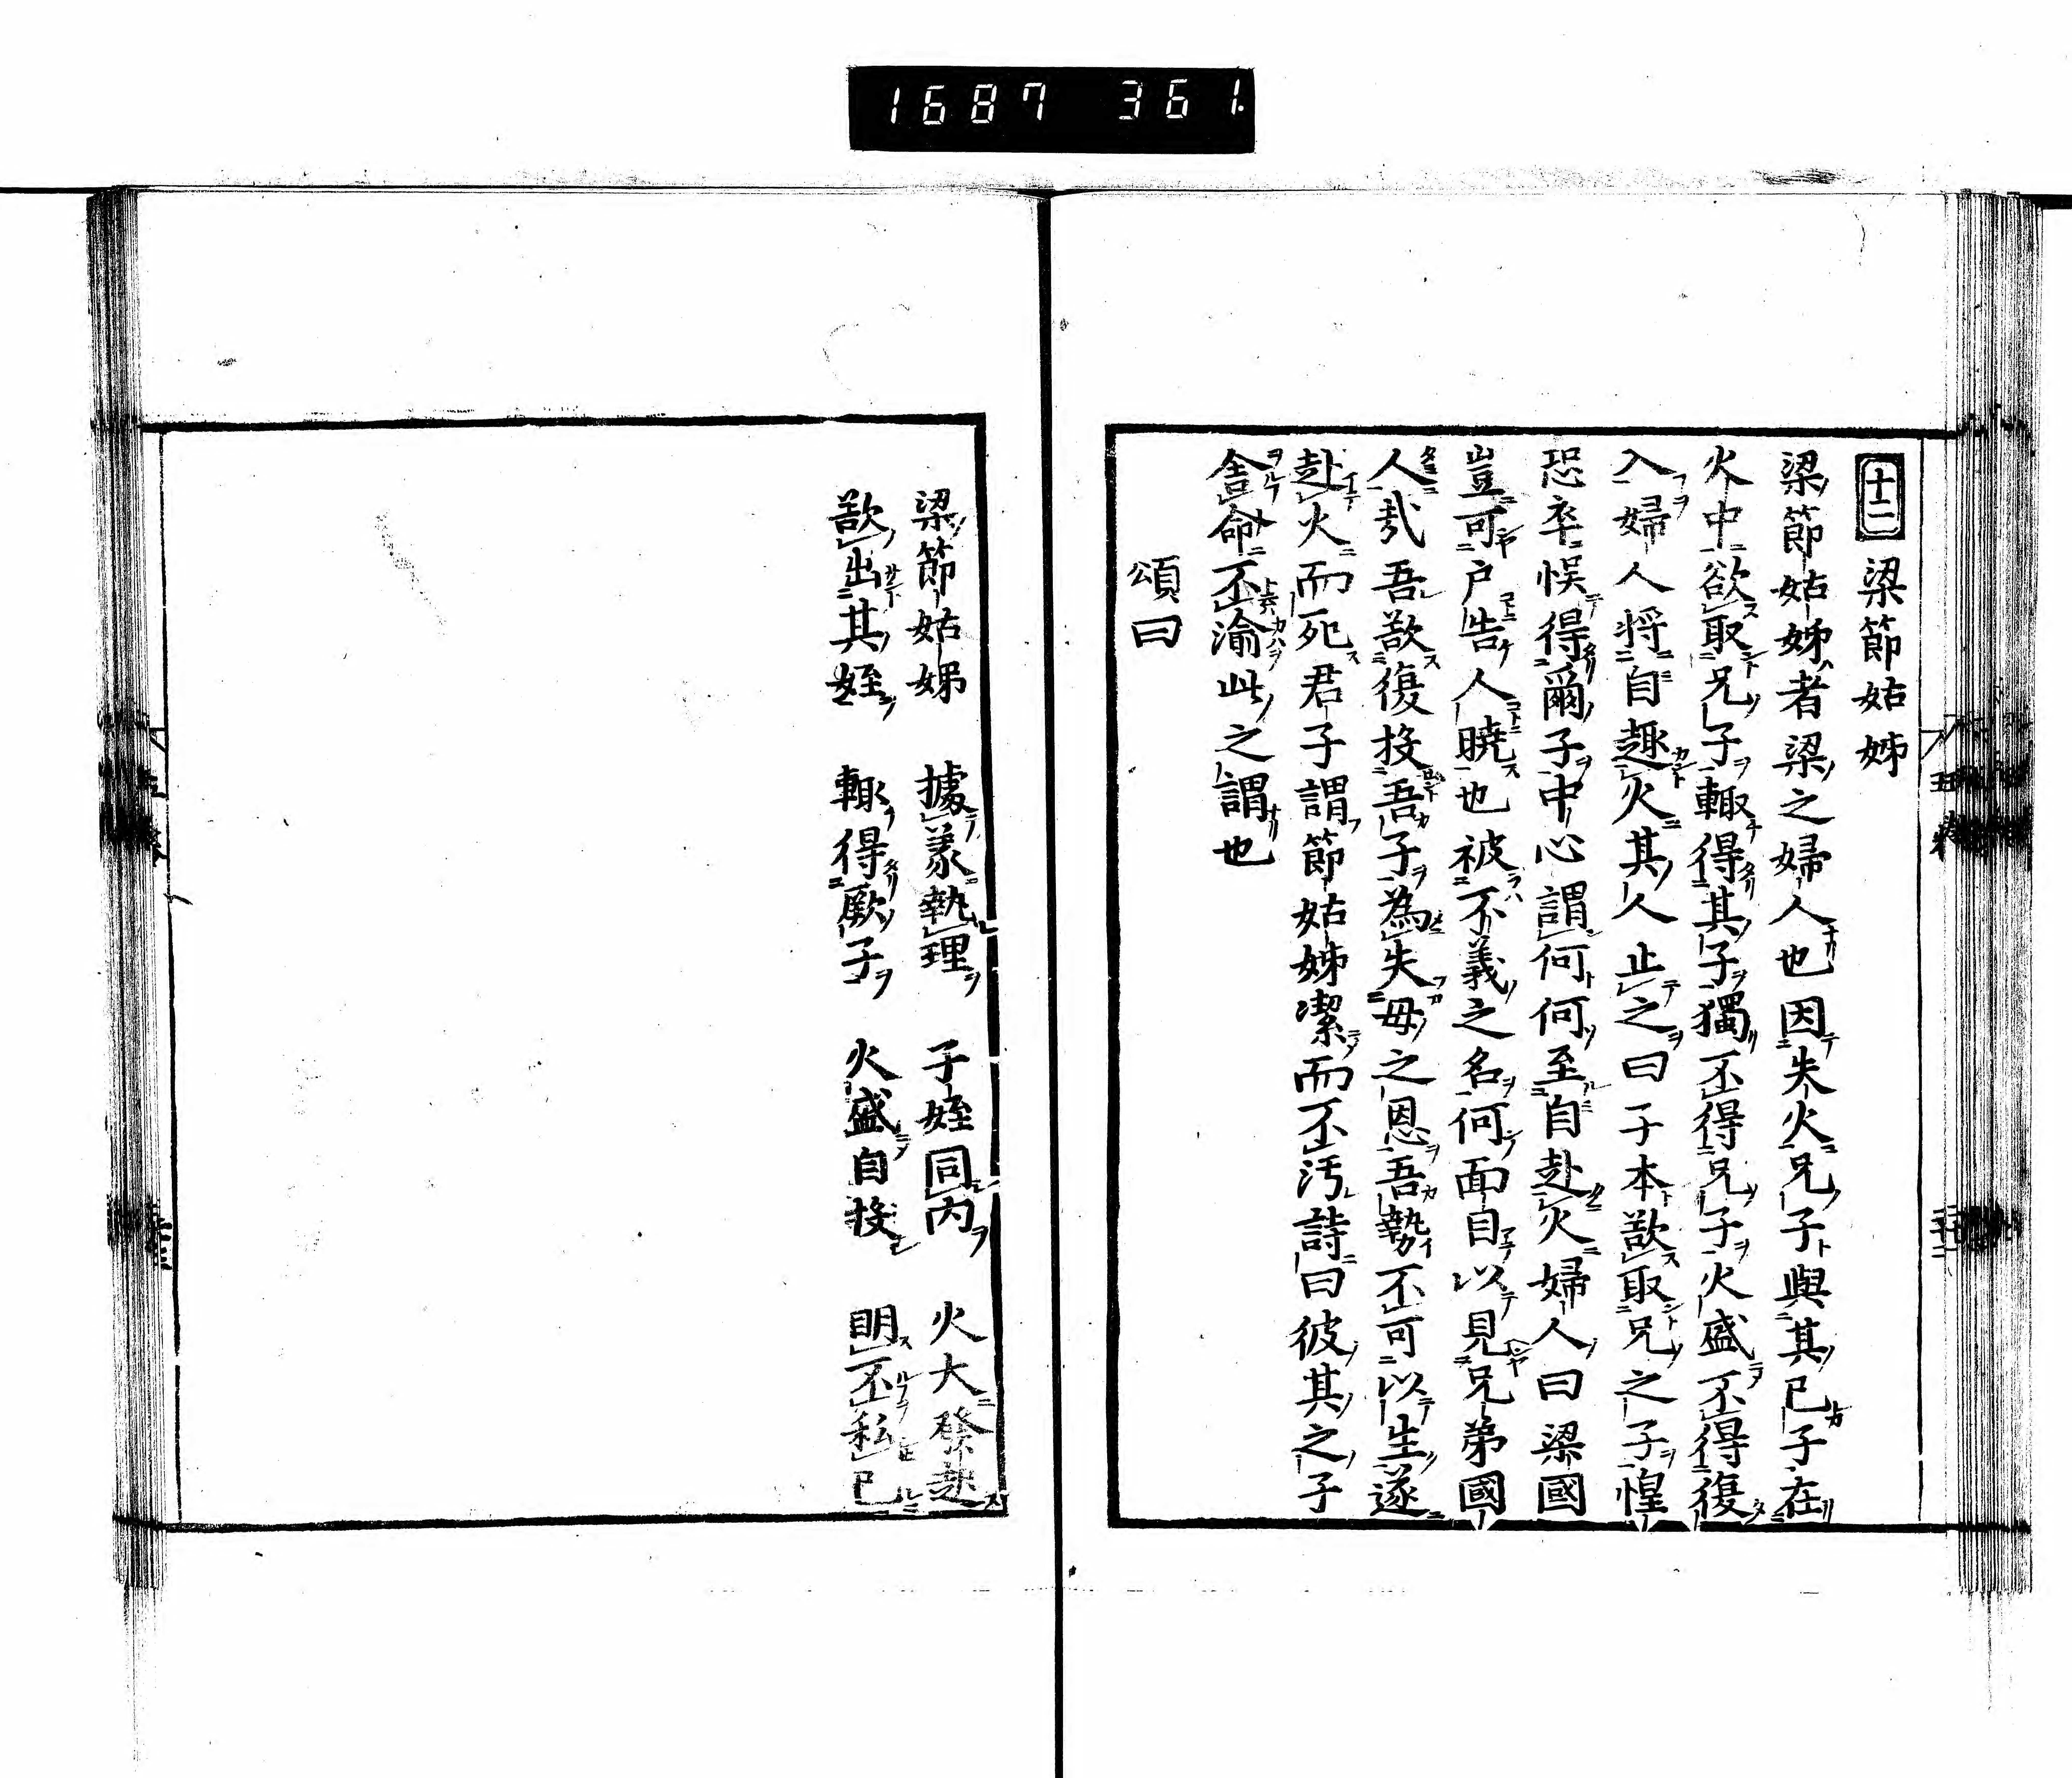 1687 361.
十二 梁節姑姊
梁節姑姊者梁之婦人也因失火兄子與其已子在
火中欲取兄子輙得其子獨不得兄子火盛不得復
入婦人將自趣火其人止之曰子本欲取兄之子惶
恐卒悞得爾子中心謂何何至自赴火婦人曰梁國
豈可户告人曉也被不義之名何面目以見兄弟國
人哉吾欲復投吾子為失母之恩吾勢不可以生遂
赴火而死君子謂節姑姊潔而不汚詩曰彼其之子
舍命不渝此之謂也
頌曰
梁節姑姊 據義執理 子姪同内 火大發起
欲出其姪 輙得厥子 火盛自投 明不私已